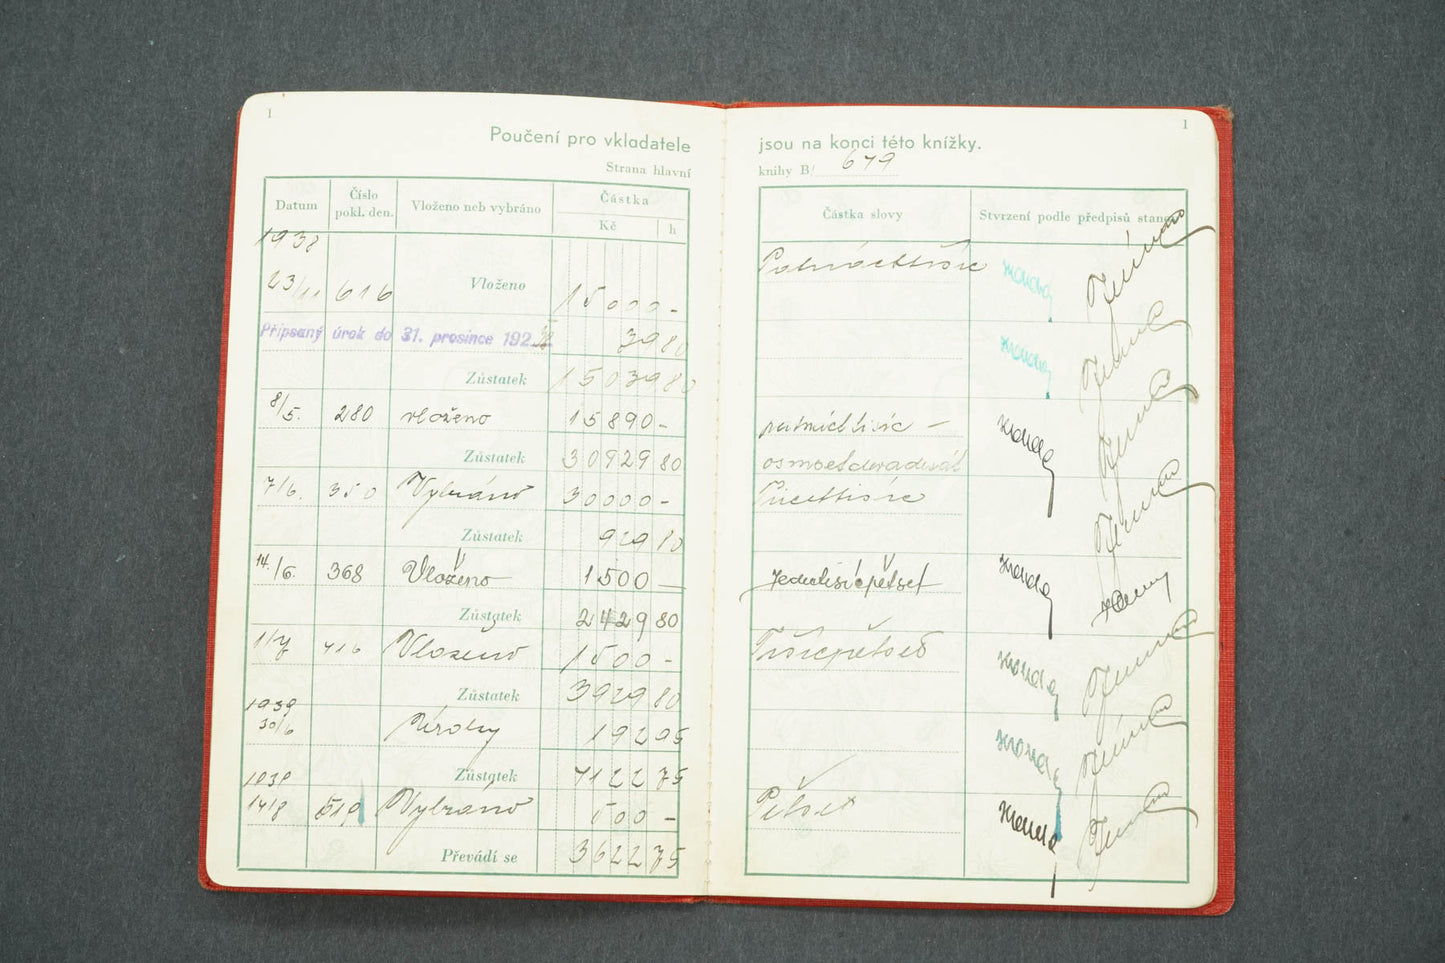 1
Poučení pro vkladatele
Strana hlavní
Datum
Číslo pokl. den.
Vloženo neb vybráno
Částka
Kč h
1938
23/11 616 Vloženo 15000 -
Připsaný úrok do 31. prosince 1928 39 80
Zůstatek 15039 80
8/5. 280 vloženo 15890 -
Zůstatek 30929 80
7/6. 350 Vybráno 30000 -
Zůstatek 929 80
14./6. 368 Vloženo 1500 —
Zůstatek 2429 80
1/7 416 Vloženo 1500 -
Zůstatek 3929 80
1939
30/6 Úroky 192 95
Zůstatek 4122 75
1939
14/8 519 Vybráno 500 -
Převádí se 3622 75
1
jsou na konci této knížky.
knihy B/ 679
Částka slovy
Stvrzení podle předpisů stanov
Patnácttisíc
patnácttisíc -
osmsetdevadesát
Třicettisíc
Jedentisícpětset
Tisícpětset
Pětset